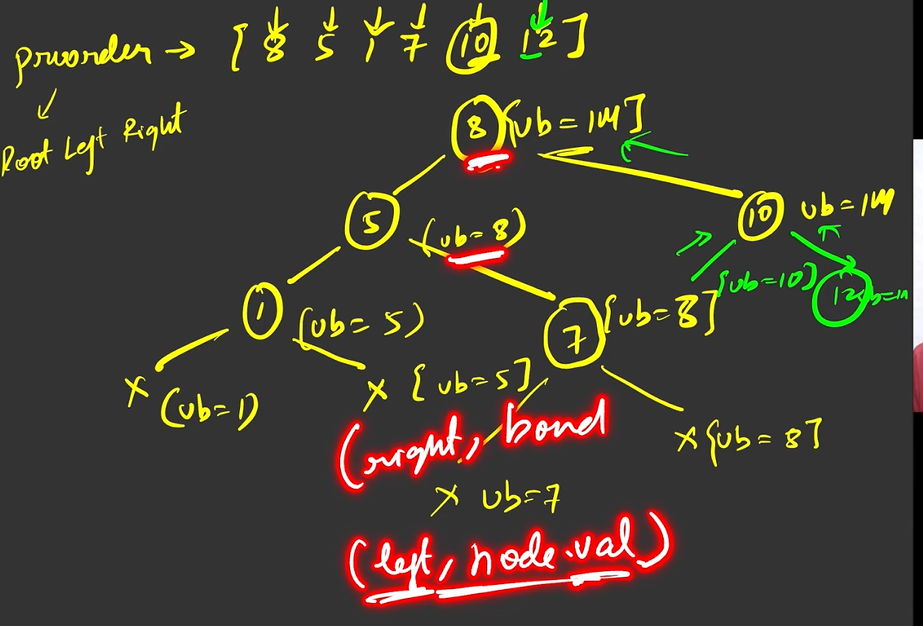 preorder → [ 8 5 1 7 10 12 ]
Root Left Right
8 [ub = 1M]
5 (ub = 8)
10 ub = 1M
1 (ub = 5)
7 [ub = 8]
[ub = 10]
12
x (ub = 1)
x [ub = 5]
x [ub = 8]
(right, bond
x ub = 7
(left, node.val)